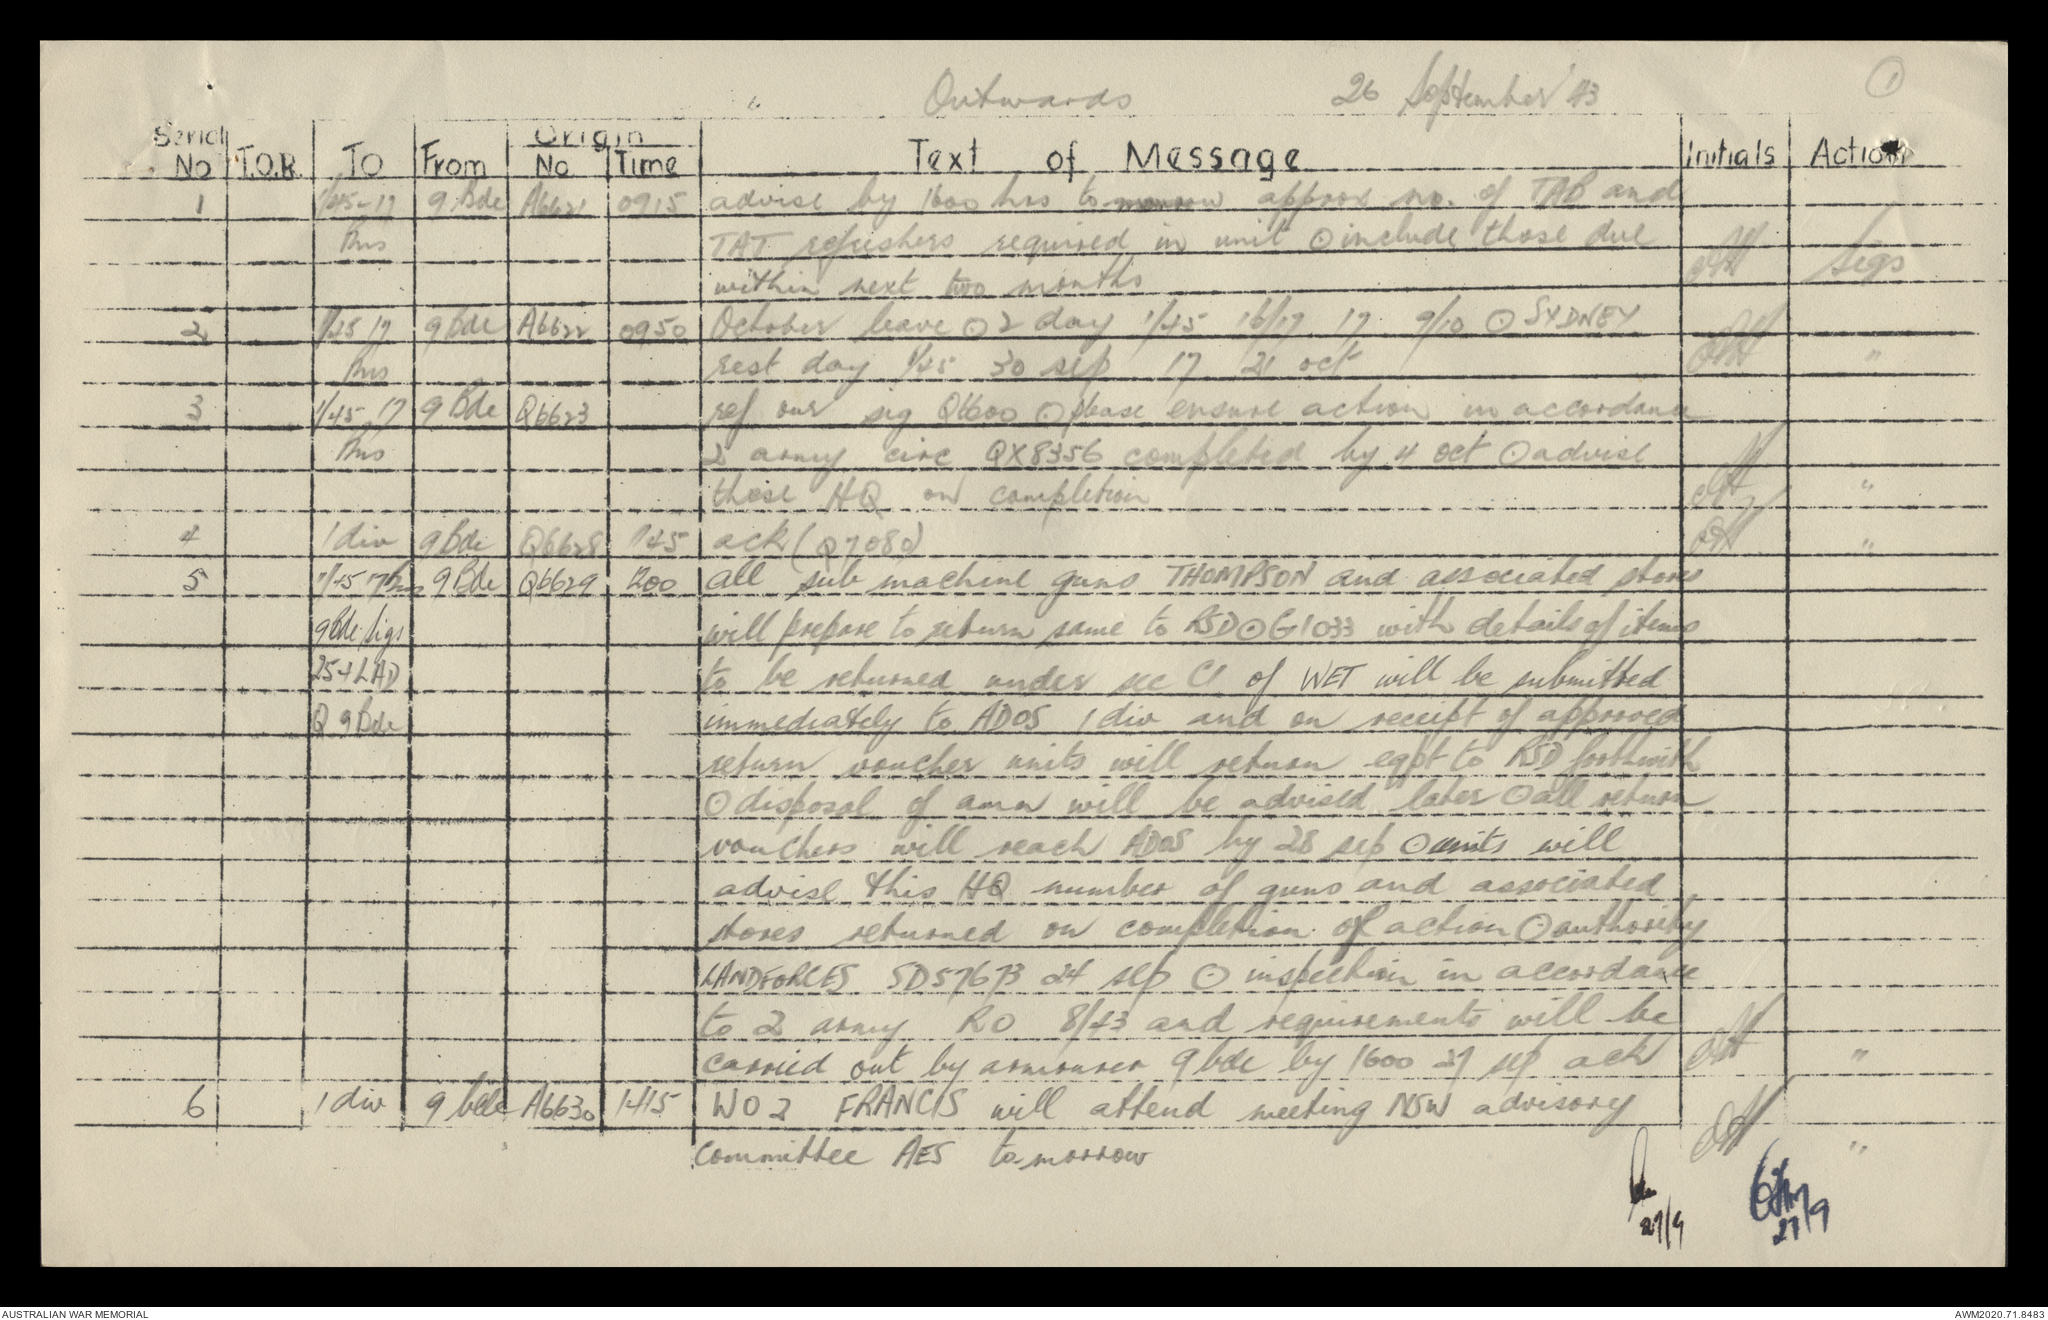 Outwards 26 September 43 1
Serial No T.O.R. TO From Origin No Time Text of Message Initials Action
1 1/45-17 9 Bde A6621 0915 advise by 1600 hrs to-morrow approx no. of TAB and
Bns TAT refreshers required in unit ⊙ include those due
within next two months Sigs
2 1/45 17 9 Bde A6622 0950 October leave ⊙ 2 day 1/45 16/17 17 9/10 ⊙ SYDNEY
Bns rest day 1/45 30 sep 17 21 oct "
3 1/45, 17 9 Bde Q6623 ref our sig Q6600 ⊙ please ensure action in accordance
Bns 2 army circ QX8356 completed by 4 oct ⊙ advise
those HQ on completion "
4 1 div 9 Bde Q6628 1145 ack (Q7080) "
5 1/45 17 Bns 9 Bde Q6629 1200 all sub machine guns THOMPSON and associated stores
9 Bde Sigs will prepare to return same to RSD ⊙ G1033 with details of items
254 LAD to be returned under sec C1 of WET will be submitted
Q 9 Bde immediately to ADOS 1 div and on receipt of approved
return voucher units will return eqpt to RSD forthwith
⊙ disposal of amn will be advised later ⊙ all return
vouchers will reach ADOS by 28 sep ⊙ units will
advise this HQ number of guns and associated
stores returned on completion of action ⊙ authority
LANDFORCES SD57673 24 sep ⊙ inspection in accordance
to 2 army RO 8/43 and requirements will be
carried out by armourer 9 bde by 1600 27 sep ack "
6 1 div 9 bde A6630 1415 WO2 FRANCIS will attend meeting NSW advisory
committee AES to-morrow "
27/9 27/9
AUSTRALIAN WAR MEMORIAL AWM2020.71.8483